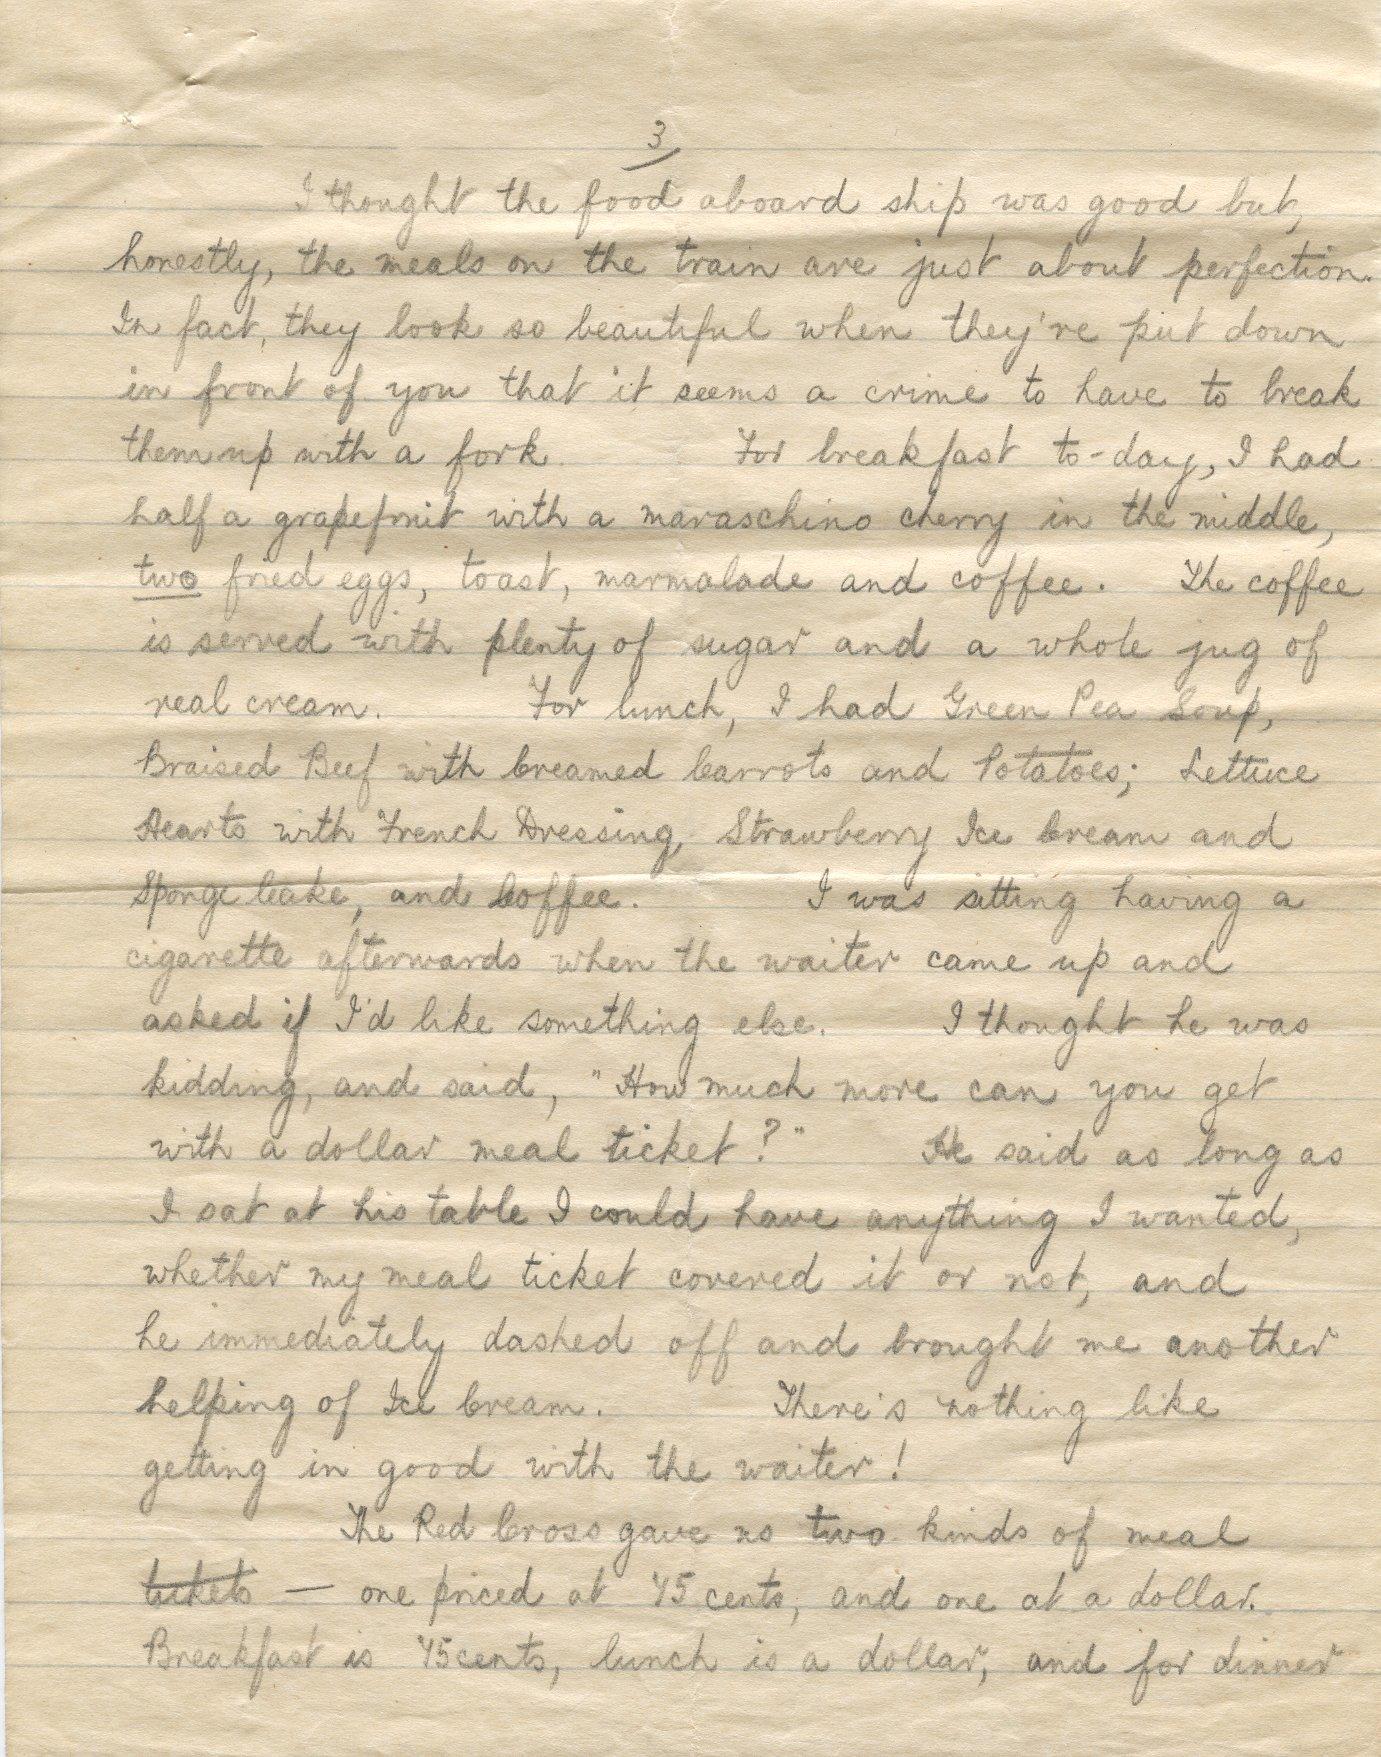 3
I thought the food aboard ship was good but,
honestly, the meals on the train are just about perfection.
In fact, they look so beautiful when they're put down
in front of you that it seems a crime to have to break
them up with a fork. For breakfast to-day, I had
half a grapefruit with a maraschino cherry in the middle,
two fried eggs, toast, marmalade and coffee. The coffee
is served with plenty of sugar and a whole jug of
real cream. For lunch, I had Green Pea Soup,
Braised Beef with Creamed Carrots and Potatoes; Lettuce
Hearts with French Dressing, Strawberry Ice Cream and
Sponge Cake, and Coffee. I was sitting having a
cigarette afterwards when the waiter came up and
asked if I'd like something else. I thought he was
kidding, and said, "How much more can you get
with a dollar meal ticket?" He said as long as
I sat at his table I could have anything I wanted,
whether my meal ticket covered it or not, and
he immediately dashed off and brought me another
helping of Ice Cream. There's nothing like
getting in good with the waiter!
The Red Cross gave us two kinds of meal
tickets — one priced at 75 cents, and one at a dollar.
Breakfast is 75 cents, lunch is a dollar, and for dinner